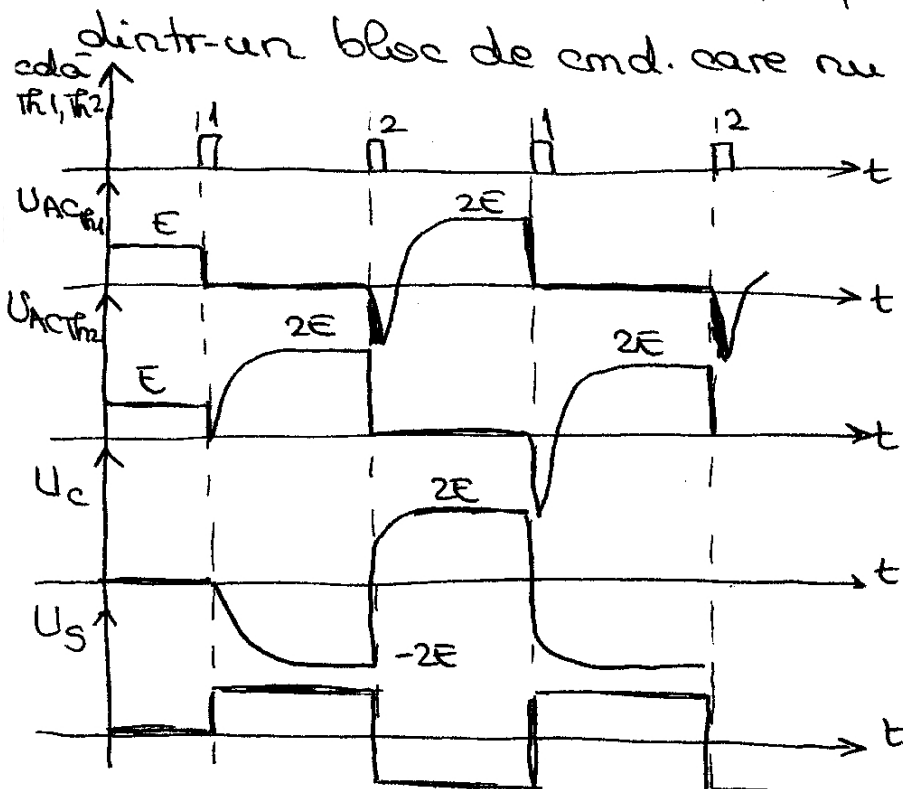 dintr-un bloc de cmd. care nu
cdă
Th1, Th2
1 2 1 2
t
UACTh1
E 2E
t
UACTh2
E 2E 2E
t
UC
2E
t
-2E
US
t